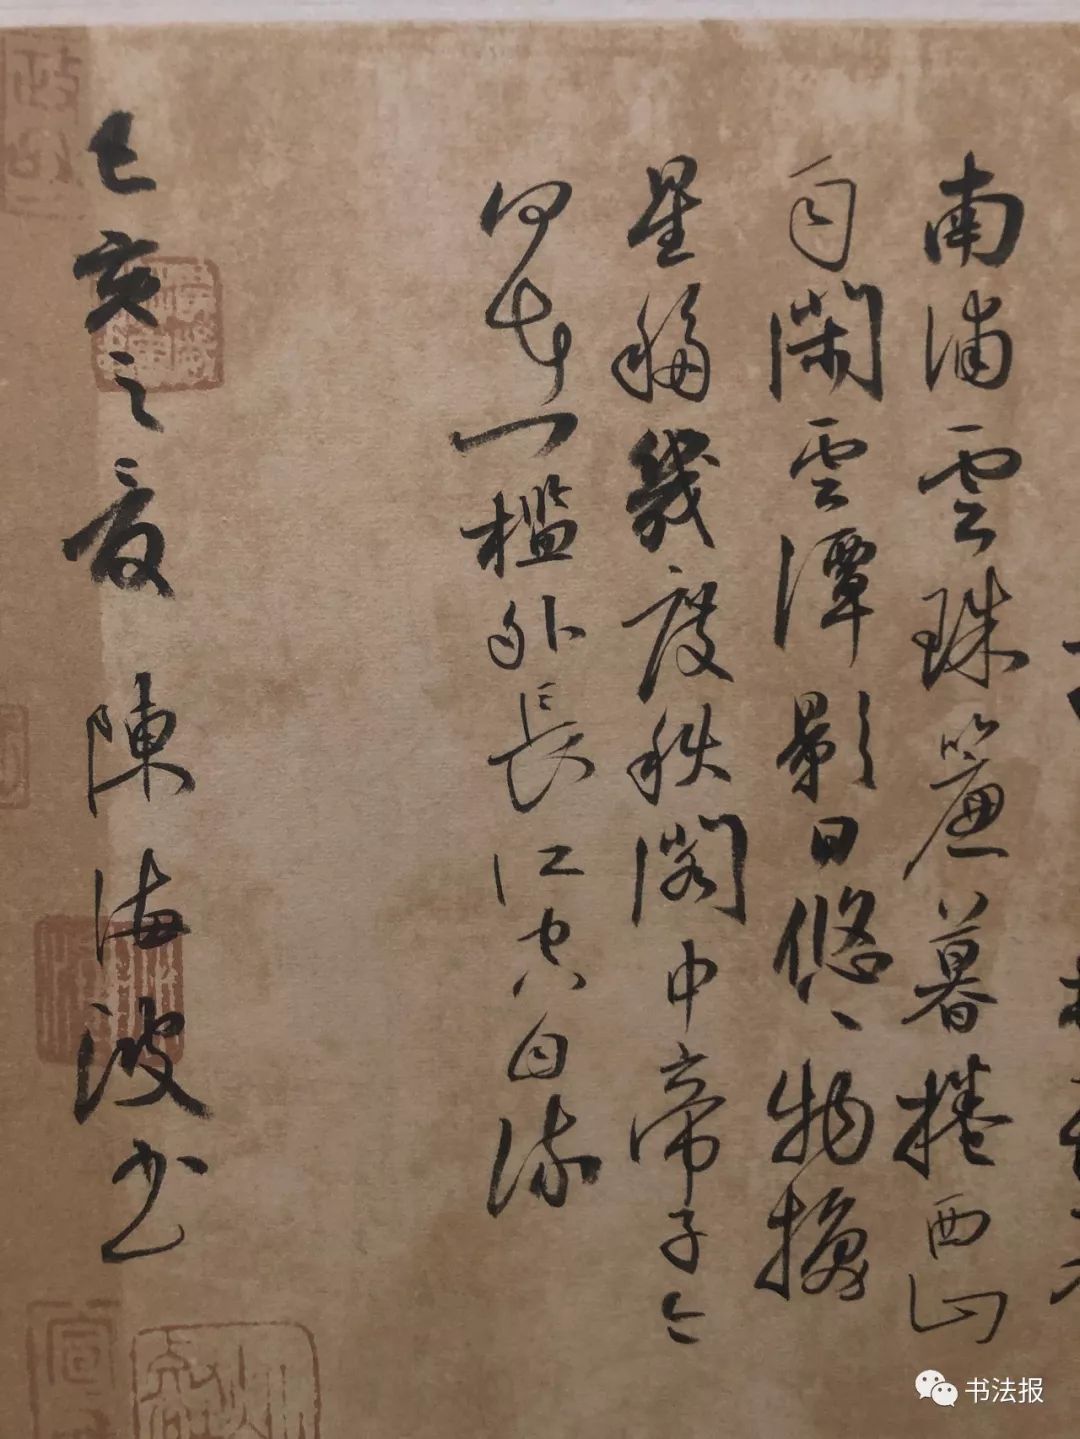 南浦雲珠簾暮捲西山
雨閑雲潭影日悠〻物換
星移幾度秋閣中帝子今
何在檻外長江空自流
己亥之夏陳海波書
书法报